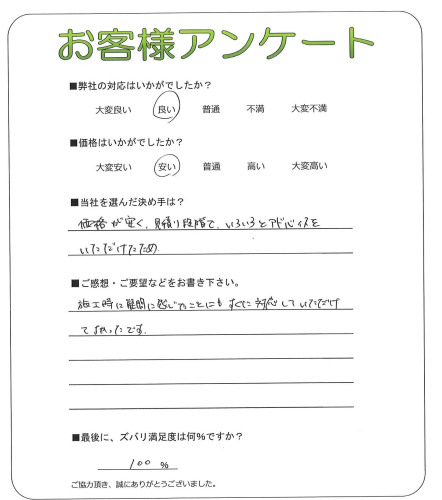 お客様アンケート
■弊社の対応はいかがでしたか？
大変良い 良い 普通 不満 大変不満
■価格はいかがでしたか？
大変安い 安い 普通 高い 大変高い
■当社を選んだ決め手は？
価格が安く、見積り段階で、いろいろとアドバイスを
いただけたため
■ご感想・ご要望などをお書き下さい。
施工時に疑問に感じたことにもすぐに対応していただけ
て よかったです.
■最後に、ズバリ満足度は何％ですか？
100 %
ご協力頂き、誠にありがとうございました。